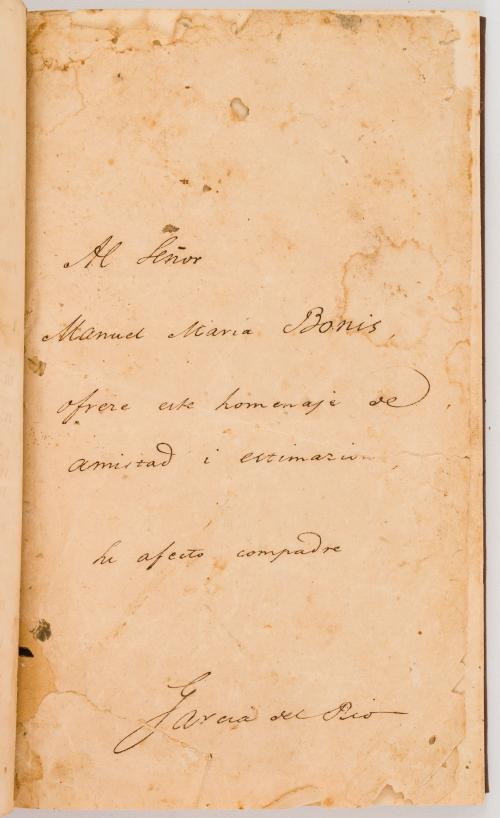 Al Señor
Manuel Maria Bonis,
ofreze este homenaje de
amistad i estimazion
su afecto compadre
Garcia del Rio